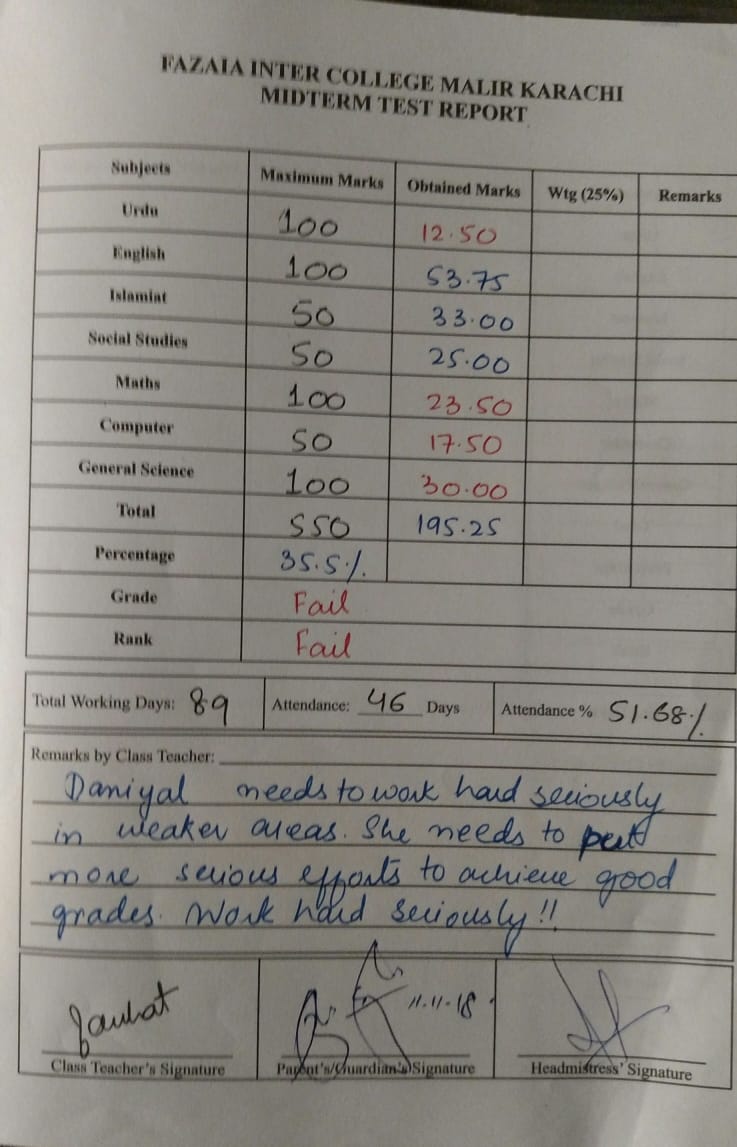 FAZAIA INTER COLLEGE MALIR KARACHI
MIDTERM TEST REPORT
Subjects Maximum Marks Obtained Marks Wtg (25%) Remarks
Urdu 100 12.50
English 100 53.75
Islamiat 50 33.00
Social Studies 50 25.00
Maths 100 23.50
Computer 50 17.50
General Science 100 30.00
Total 550 195.25
Percentage 35.5%
Grade Fail
Rank Fail
Total Working Days: 89 Attendance: 46 Days Attendance % 51.68%
Remarks by Class Teacher:
Daniyal needs to work hard seriously
in weaker areas. She needs to put
more serious efforts to achieve good
grades. Work hard seriously!!
11.11.18
Class Teacher's Signature Parent's/Guardian's Signature Headmistress' Signature